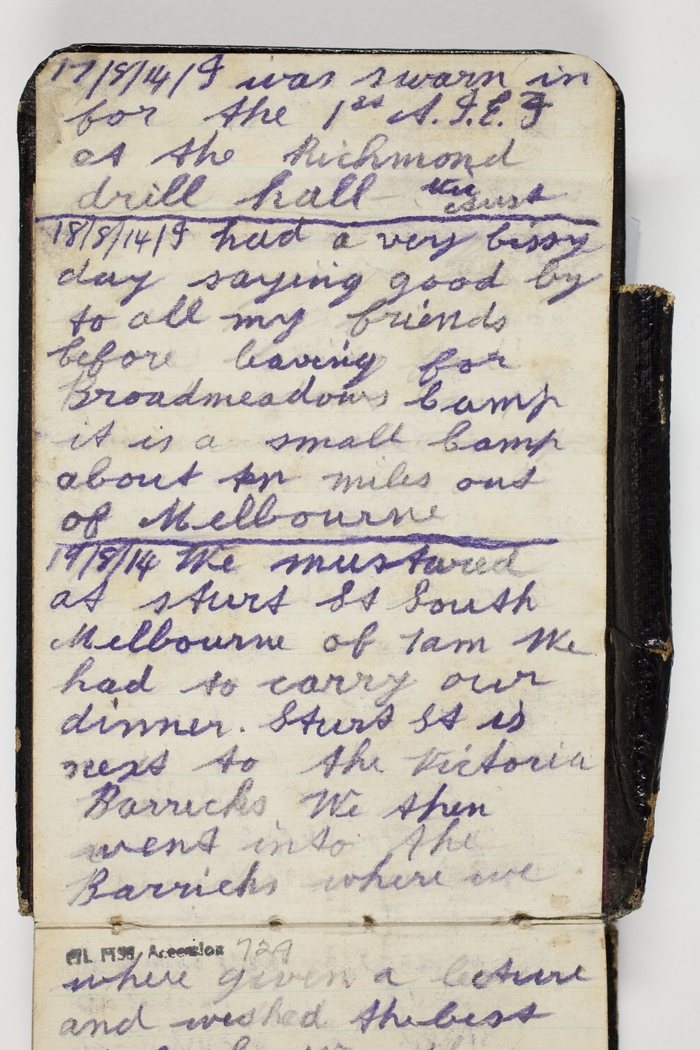 17/8/14/I was swarn in
for the 1st A.I.E.F
at the Richmond
drill hall Vic
Aust
18/8/14/I had a very bissy
day saying good by
to all my friends
before leaving for
Broadmeadows Camp
it is a small Camp
about miles out
of Melbourne
19/8/14 We mustured
at sturt St South
Melbourne of 7am We
had to carry our
dinner. Sturt St is
next to the Victoria
Barricks We then
went into the
Barricks where we
Accession 729
where given a lecture
and wished the best